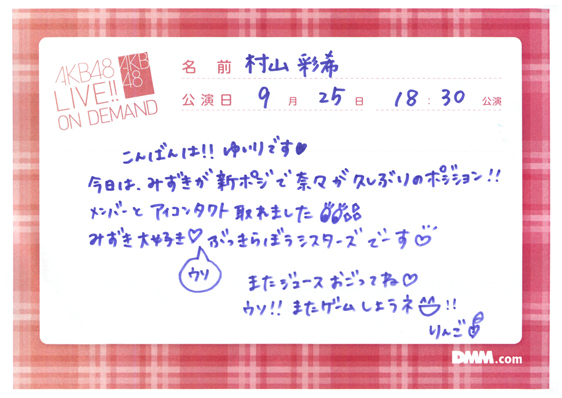 AKB48
LIVE!!
ON DEMAND
AKB
48
名 前 村山 彩希
公演日 9 月 25 日 18 : 30 公演
こんばんは!! ゆいりです♥
今日は、みずきが新ポジで奈々が久しぶりのポジション!!
メンバーとアイコンタクト取れました
みずき大好き♡ ぶっきらぼうシスターズでーす
ウソ
またジュースおごってね♡
ウソ!! またゲームしようネ !!
りんご
DMM.com